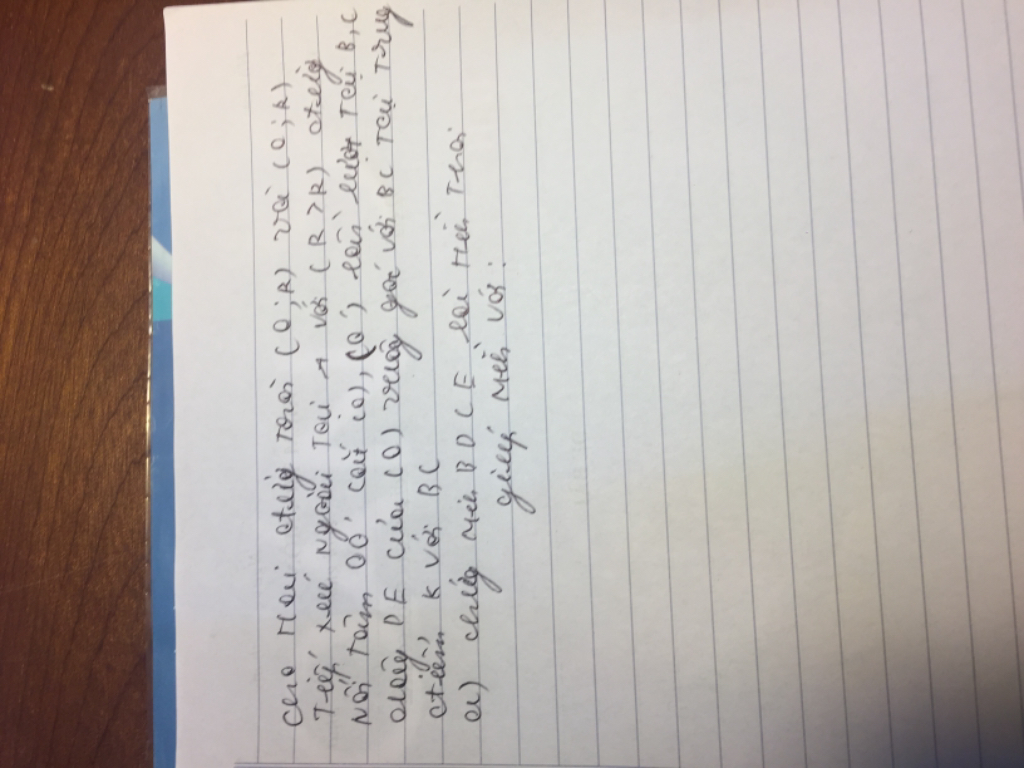 Cho hai đường tròn (O;R) và (O;R)
Tiếp xúc ngoài tại A với (R>R) đường
nối tâm OO' cắt (O), (O') lần lượt tại B, C
dây DE của (O) vuông góc với BC tại trung
điểm K với BC
a) chứng minh BDCE là hình thoi
giúp mềnh vơi.